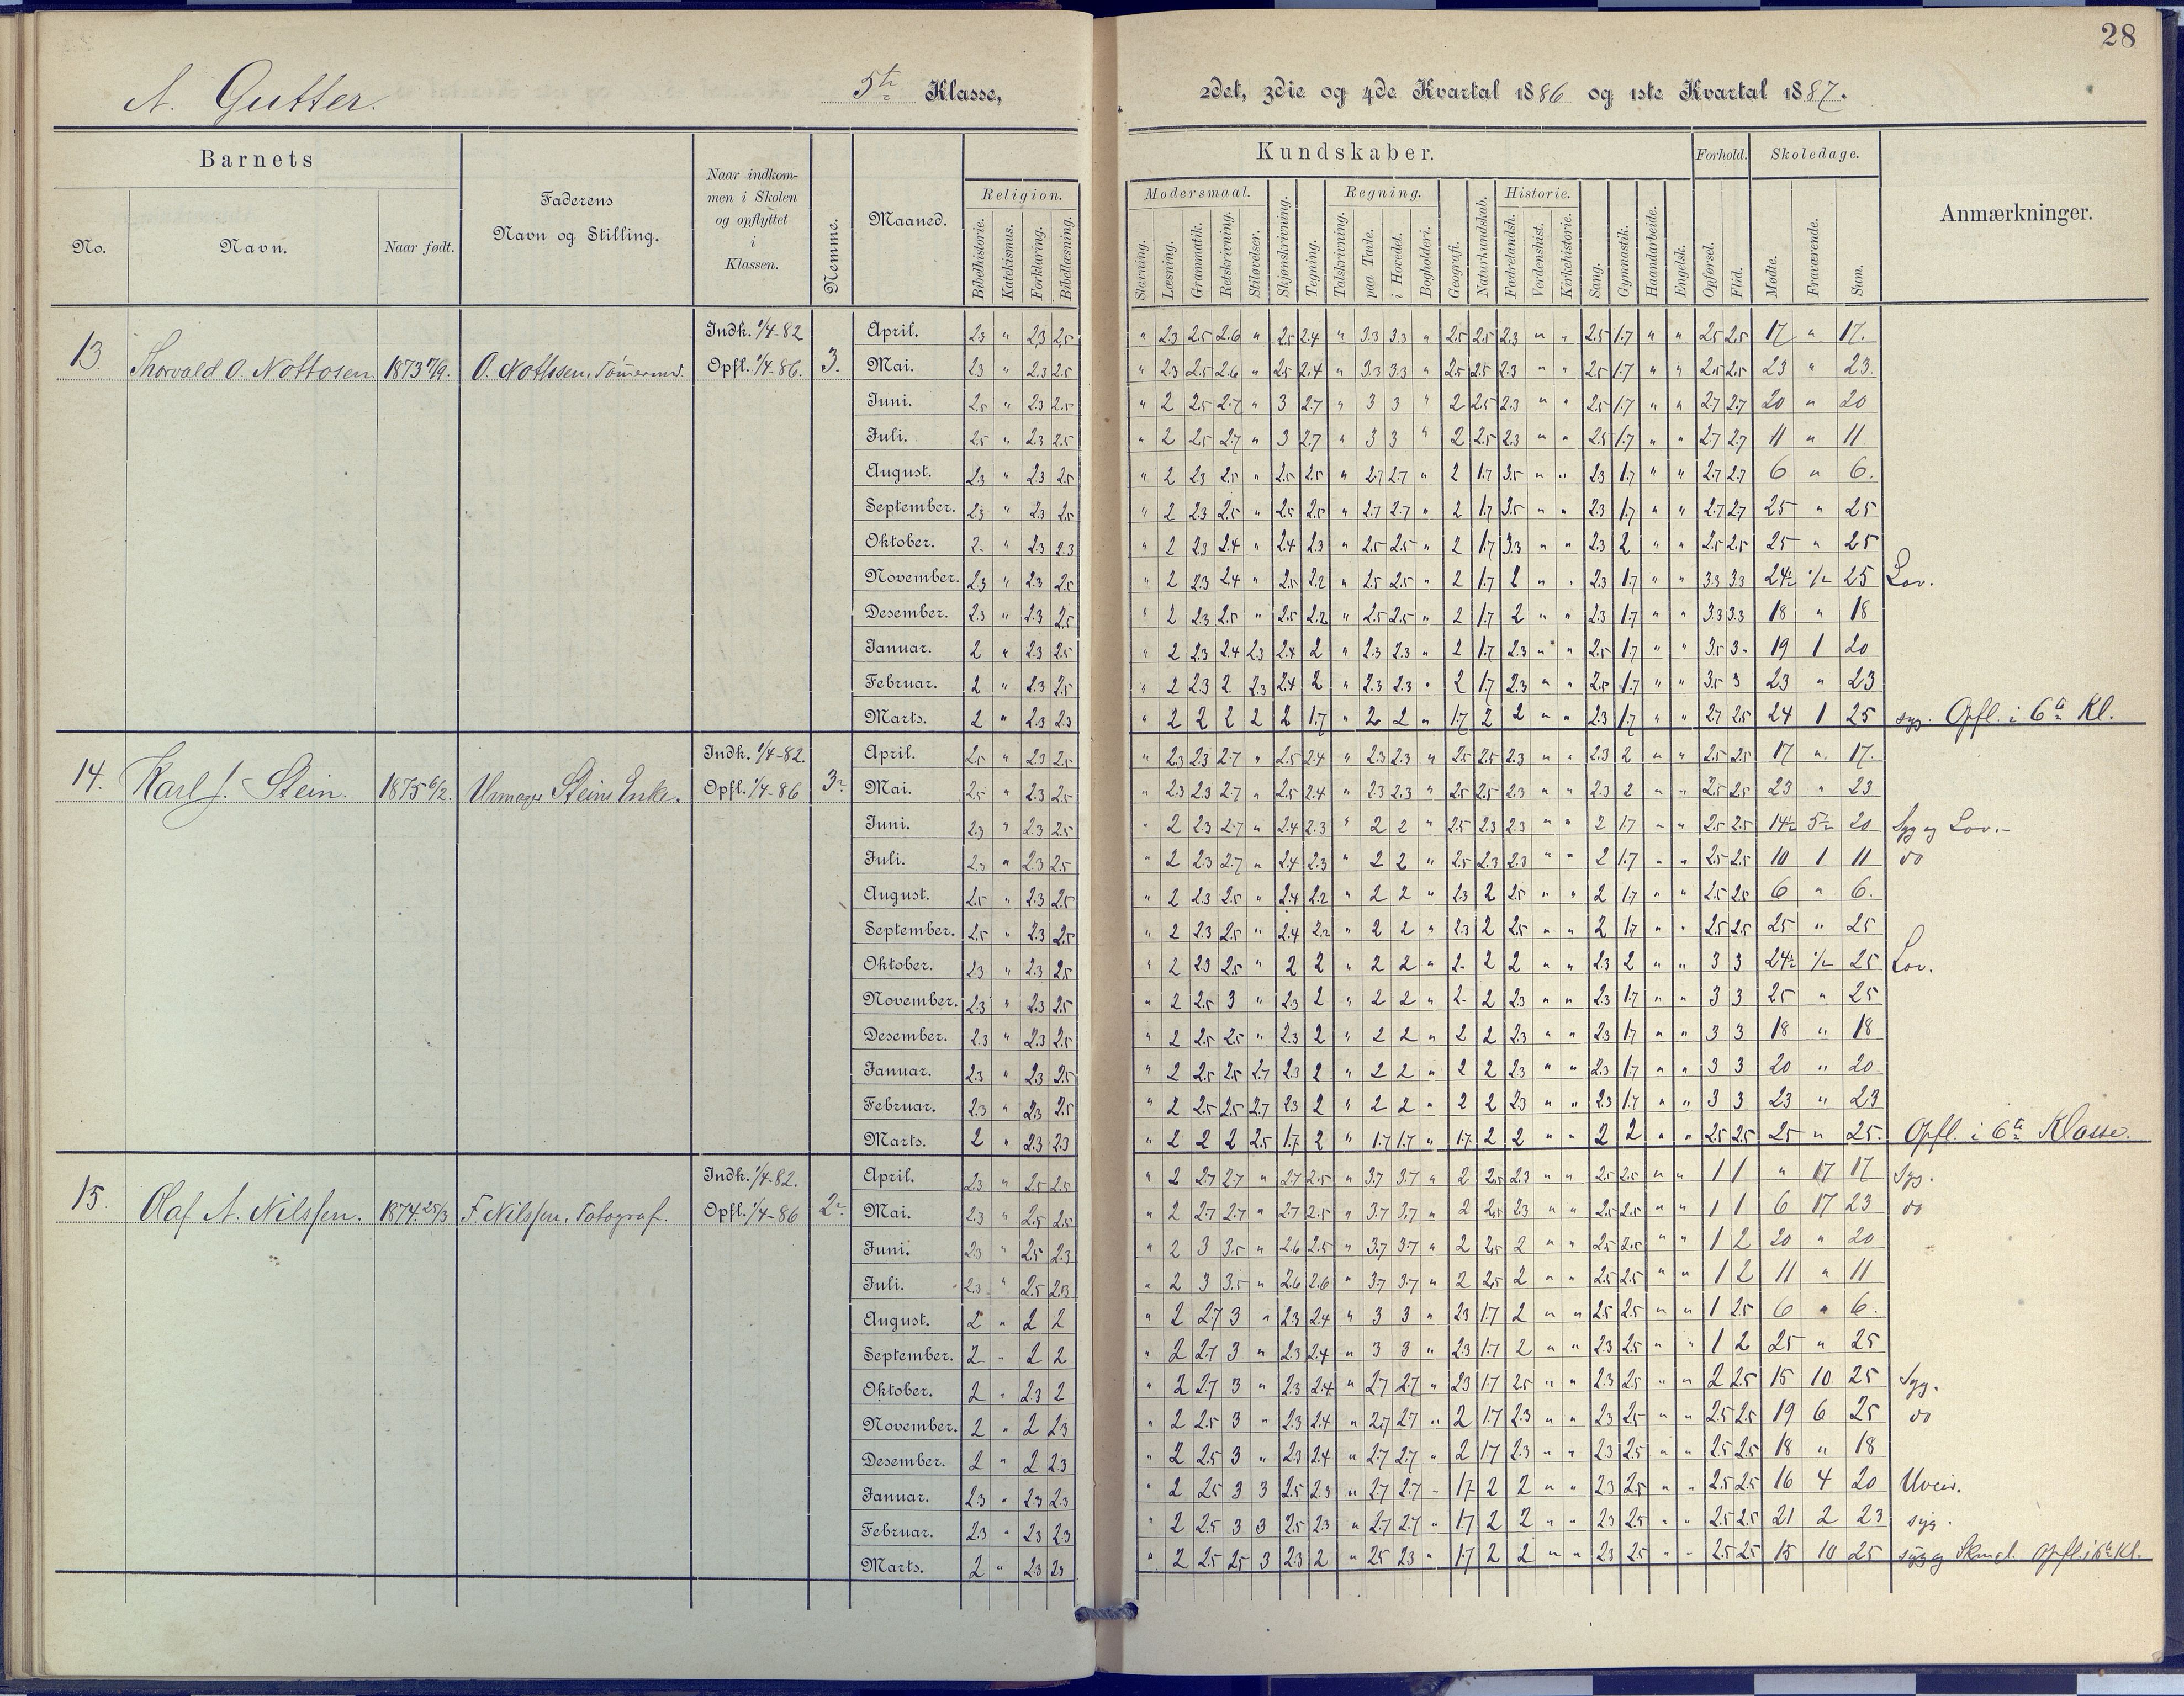 28
A. Gutter.
5te Klasse,
2det, 3die og 4de Kvartal 1886 og 1ste Kvartal 1887.
Barnets
No.
Navn.
Naar født.
Faderens
Navn og Stilling.
Naar indkom-
men i Skolen
og opflyttet
i
Klassen.
Nemme.
Maaned.
Kundskaber.
Religion.
Bibelhistorie. Katekismus. Forklaring. Bibellæsning.
Modersmaal.
Stavning. Læsning. Grammatik. Retskrivning. Stiløvelser.
Skjønskrivning.
Tegning.
Regning.
Talskrivning. paa Tavle. i Hovedet. Bogholderi.
Geografi.
Naturkundskab.
Historie.
Fædrelandsh. Verdenshist. Kirkehistorie.
Sang.
Gymnastik.
Haandarbeide.
Engelsk.
Forhold.
Opførsel. Flid.
Skoledage.
Mødte. Fraværende. Sum.
Anmærkninger.
13. Thorvald O. Nottosen 1873 17/9. O. Nottosen, Tømermd. Indk. 1/4-82 Opfl. 1/4-86. 3.
April. 2.3 " 2.3 2.5 " 2.3 2.5 2.6 " 2.5 2.4 " 3.3 3.3 " 2.5 2.5 2.3 " " 2.5 1.7 " " 2.5 2.5 17 " 17.
Mai. 2.3 " 2.3 2.5 " 2.3 2.5 2.6 " 2.5 2.4 " 3.3 3.3 " 2.5 2.5 2.3 " " 2.5 1.7 " " 2.5 2.5 23 " 23.
Juni. 2.5 " 2.3 2.5 " 2 2.5 2.7 " 3 2.7 " 3 3 " 2 2.5 2.3 " " 2.5 1.7 " " 2.7 2.7 20 " 20
Juli. 2.5 " 2.3 2.5 " 2 2.5 2.7 " 3 2.7 " 3 3 " 2 2.5 2.3 " " 2.5 1.7 " " 2.7 2.7 11 " 11
August. 2.3 " 2.3 2.5 " 2 2.3 2.5 " 2.5 2.5 " 2.7 2.7 " 2 1.7 3.5 " " 2.3 1.7 " " 2.7 2.7 6 " 6.
September. 2.3 " 2.3 2.5 " 2 2.3 2.5 " 2.5 2.5 " 2.7 2.7 " 2 1.7 3.5 " " 2.3 1.7 " " 2.7 2.7 25 " 25
Oktober. 2. " 2.3 2.3 " 2 2.3 2.4 " 2.4 2.3 " 2.5 2.5 " 2 1.7 3.3 " " 2.3 2 " " 2.5 2.5 25 " 25
November. 2.3 " 2.3 2.5 " 2 2.3 2.4 " 2.5 2.2 " 2.5 2.5 " 2 1.7 2 " " 2.3 1.7 " " 3.3 3.3 24½ ½ 25 Lov.
Desember. 2.3 " 2.3 2.5 " 2 2.3 2.5 " 2.5 2.2 " 2.5 2.5 " 2 1.7 2 " " 2.3 1.7 " " 3.3 3.3 18 " 18
Januar. 2 " 2.3 2.5 " 2 2.3 2.4 2.3 2.4 2 " 2.3 2.3 " 2 1.7 2.3 " " 2.5 1.7 " " 3.5 3. 19 1 20
Februar. 2 " 2.3 2.5 " 2 2.3 2 2.3 2.4 2 " 2.3 2.3 " 2 1.7 2.3 " " 2.5 1.7 " " 3.5 3 23 " 23
Marts. 2 " 2.3 2.3 " 2 2 2 2 2 1.7 " 2 2 " 1.7 2 2 " " 2.3 1.7 " " 2.7 2.5 24 1 25 syg. Opfl. i 6te Kl.
14. Karl J. Stein. 1875 6/2. Urmager Steins Enke. Indk. 1/4-82. Opfl. 1/4-86 3
April. 2.5 " 2.3 2.5 " 2.3 2.3 2.7 " 2.5 2.4 " 2.3 2.3 " 2.5 2.5 2.3 " " 2.3 2 " " 2.5 2.5 17 " 17.
Mai. 2.5 " 2.3 2.5 " 2.3 2.3 2.7 " 2.5 2.4 " 2.3 2.3 " 2.5 2.5 2.3 " " 2.3 2 " " 2.5 2.5 23 " 23
Juni. 2.3 " 2.3 2.5 " 2 2.3 2.7 " 2.4 2.3 " 2 2 " 2.5 2.3 2.3 " " 2 1.7 " " 2.5 2.5 14½ 5½ 20 Syg og Lov.-
Juli. 2.3 " 2.3 2.5 " 2 2.3 2.7 " 2.4 2.3 " 2 2 " 2.5 2.3 2.3 " " 2 1.7 " " 2.5 2.5 10 1 11 do
August. 2.5 " 2.3 2.5 " 2 2.3 2.5 " 2.4 2.2 " 2 2 " 2.3 2 2.5 " " 2 1.7 " " 2.5 2.5 6 " 6.
September. 2.5 " 2.3 2.5 " 2 2.3 2.5 " 2.4 2.2 " 2 2 " 2.3 2 2.5 " " 2 1.7 " " 2.5 2.5 25 " 25
Oktober. 2.3 " 2.3 2.5 " 2 2.3 2.5 " 2 2 " 2 2 " 2. 2 2 " " 2.3 2 " " 3 3 24½ ½ 25 Lov.
November. 2.3 " 2.3 2.5 " 2 2.5 3 " 2.3 2 " 2 2 " 2. 2 2.3 " " 2.3 1.7 " " 3 3 25 " 25
Desember. 2.3 " 2.3 2.5 " 2 2.5 2.5 " 2.3 2 " 2 2 " 2 2 2.3 " " 2.3 1.7 " " 3 3 18 " 18
Januar. 2.3 " 2.3 2.5 " 2 2.5 2.5 2.7 2.3 2 " 2 2 " 2 2 2.3 " " 2.3 1.7 " " 3 3 20 " 20
Februar. 2.3 " 2.3 2.5 " 2 2.5 2.5 2.7 2.3 2 " 2 2 " 2 2 2.3 " " 2.3 1.7 " " 3 3 23 " 23
Marts. 2 " 2.3 2.3 " 2 2 2 2.5 1.7 2 " 1.7 1.7 " 1.7 2 2 " " 2 2 " " 2.5 2.5 25 " 25. Opfl. i 6te Klasse.
15. Olaf A. Nilssen. 1874. 25/3 F. Nilssen, Fotograf. Indk. 1/4-82. Opfl. 1/4-86 2
April. 2.3 " 2.5 2.5 " 2 2.7 2.7 " 2.7 2.5 " 3.7 3.7 " 2 2.5 2.3 " " 2.5 2.5 " " 1 1 " 17 17 Syg.
Mai. 2.3 " 2.5 2.5 " 2 2.7 2.7 " 2.7 2.5 " 3.7 3.7 " 2 2.5 2.3 " " 2.5 2.5 " " 1 1 6 17 23 do
Juni. 2.3 " 2.5 2.3 " 2 3 3.5 " 2.6 2.5 " 3.7 3.7 " 2 2.5 2 " " 2.5 2.5 " " 1 2 20 " 20
Juli. 2.3 " 2.5 2.3 " 2 3 3.5 " 2.6 2.6 " 3.7 3.7 " 2 2.5 2 " " 2.5 2.5 " " 1 2 11 " 11
August. 2 " 2 2 " 2 2.7 3 " 2.3 2.4 " 3 3 " 2.3 1.7 2 " " 2.5 2.5 " " 1 2.5 6 " 6.
September. 2 " 2 2 " 2 2.7 3 " 2.3 2.4 " 3 3 " 2.3 1.7 2 " " 2.3 2.5 " " 1 2 25 " 25
Oktober. 2 " 2.3 2 " 2 2.7 3 " 2.3 2.4 " 2.7 2.7 " 2.3 1.7 2.5 " " 2.3 2.5 " " 2 2.5 15 10 25 Syg.
November. 2 " 2 2.3 " 2 2.5 3 " 2.3 2.4 " 2.7 2.7 " 2 1.7 2.3 " " 2.3 2.5 " " 2.5 2.5 19 6 25 do
Desember. 2 " 2 2.3 " 2 2.5 3 " 2.3 2.4 " 2.7 2.7 " 2 1.7 2.3 " " 2.3 2.5 " " 2.5 2.5 18 " 18
Januar. 2.3 " 2.3 2.3 " 2 2.5 3 3 2.5 2.3 " 2.7 2.7 " 1.7 2 2 " " 2.3 2.5 " " 2.5 2.5 16 4 20 Uveir.
Februar. 2.3 " 2.3 2.3 " 2 2.5 3 3 2.5 2.3 " 2.7 2.7 " 1.7 2 2 " " 2.3 2.5 " " 2.5 2.5 21 2 23 syg.
Marts. 2 " 2.3 2.3 " 2 2.5 2.5 3 2.3 2 " 2.5 2.3 " 1.7 2 2 " " 2.3 2.5 " " 2.5 2.5 15 10 25 syg og Skmgl. Opfl. i 6te Kl.